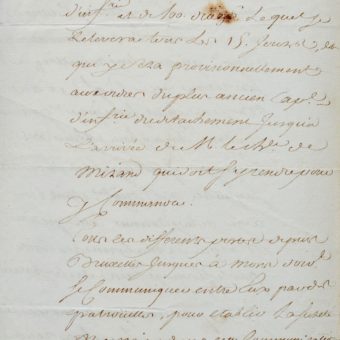 d'inf.rie et de 100 drag.s Lequel Se
Relevera tous Les 15. Jours, et
qui y sera provisionnellement
aux ordres du plus ancien Cap.e
d'inf.rie du détachement Jusqu'à
L'arrivée de M. le ch.er de
qui doit S'y rendre pour
y Commander.
Tous les differents postes depuis
Bruxelles Jusques à mons doiv.t
Se Communiquer entre Eux par des
patrouilles, pour établir la